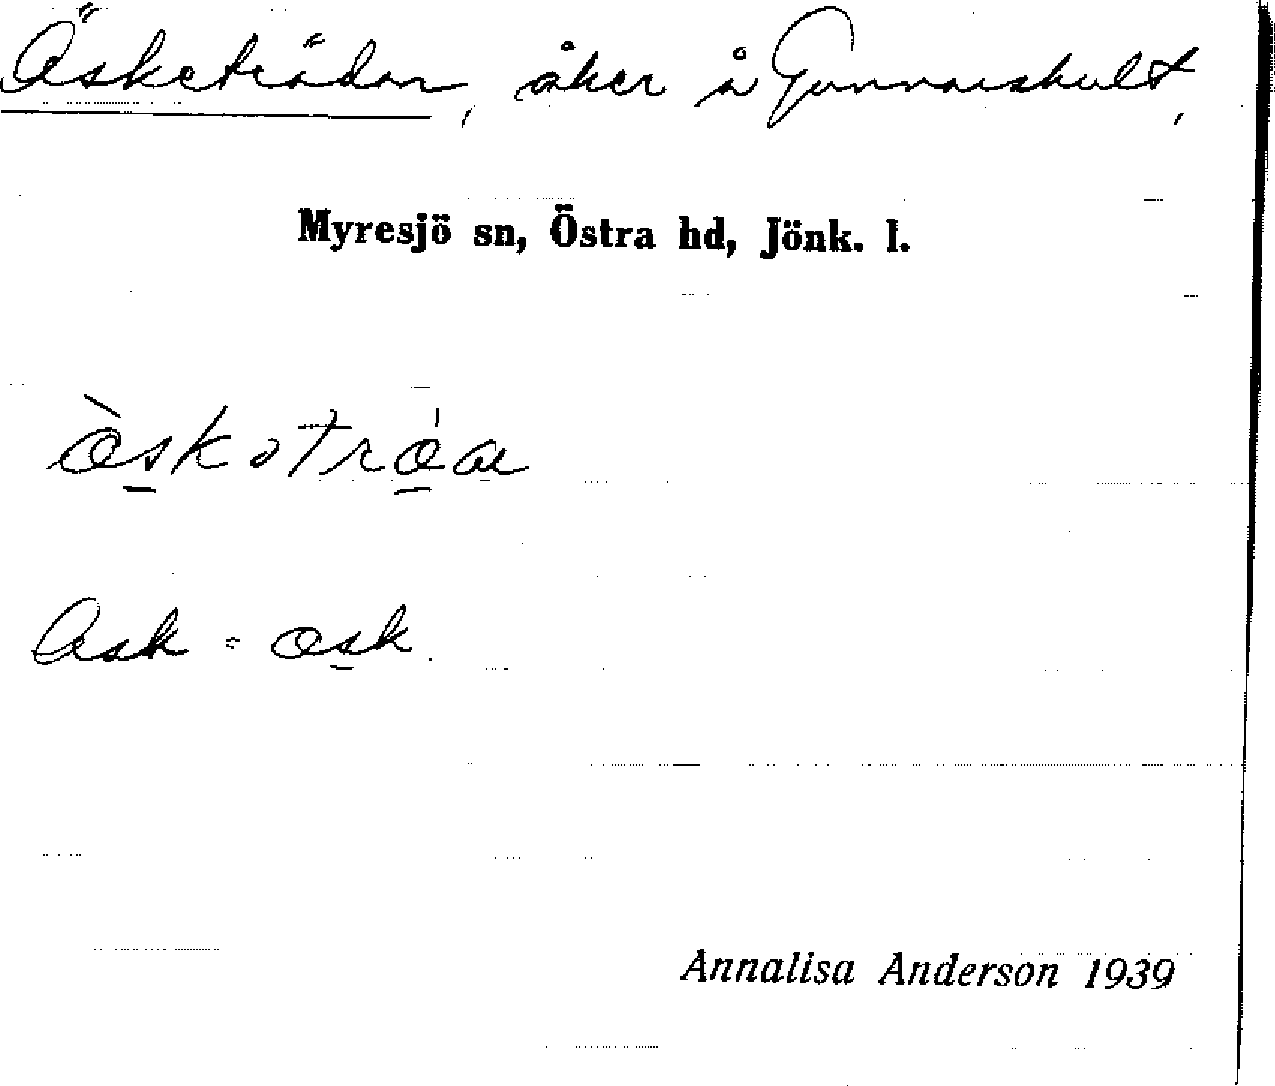 Äsketrädan, åker å Gunnarskult,
Myresjö sn, Östra hd, Jönk. l.
æ̀skətrǽa
Ask = æsk.
Annalisa Anderson 1939